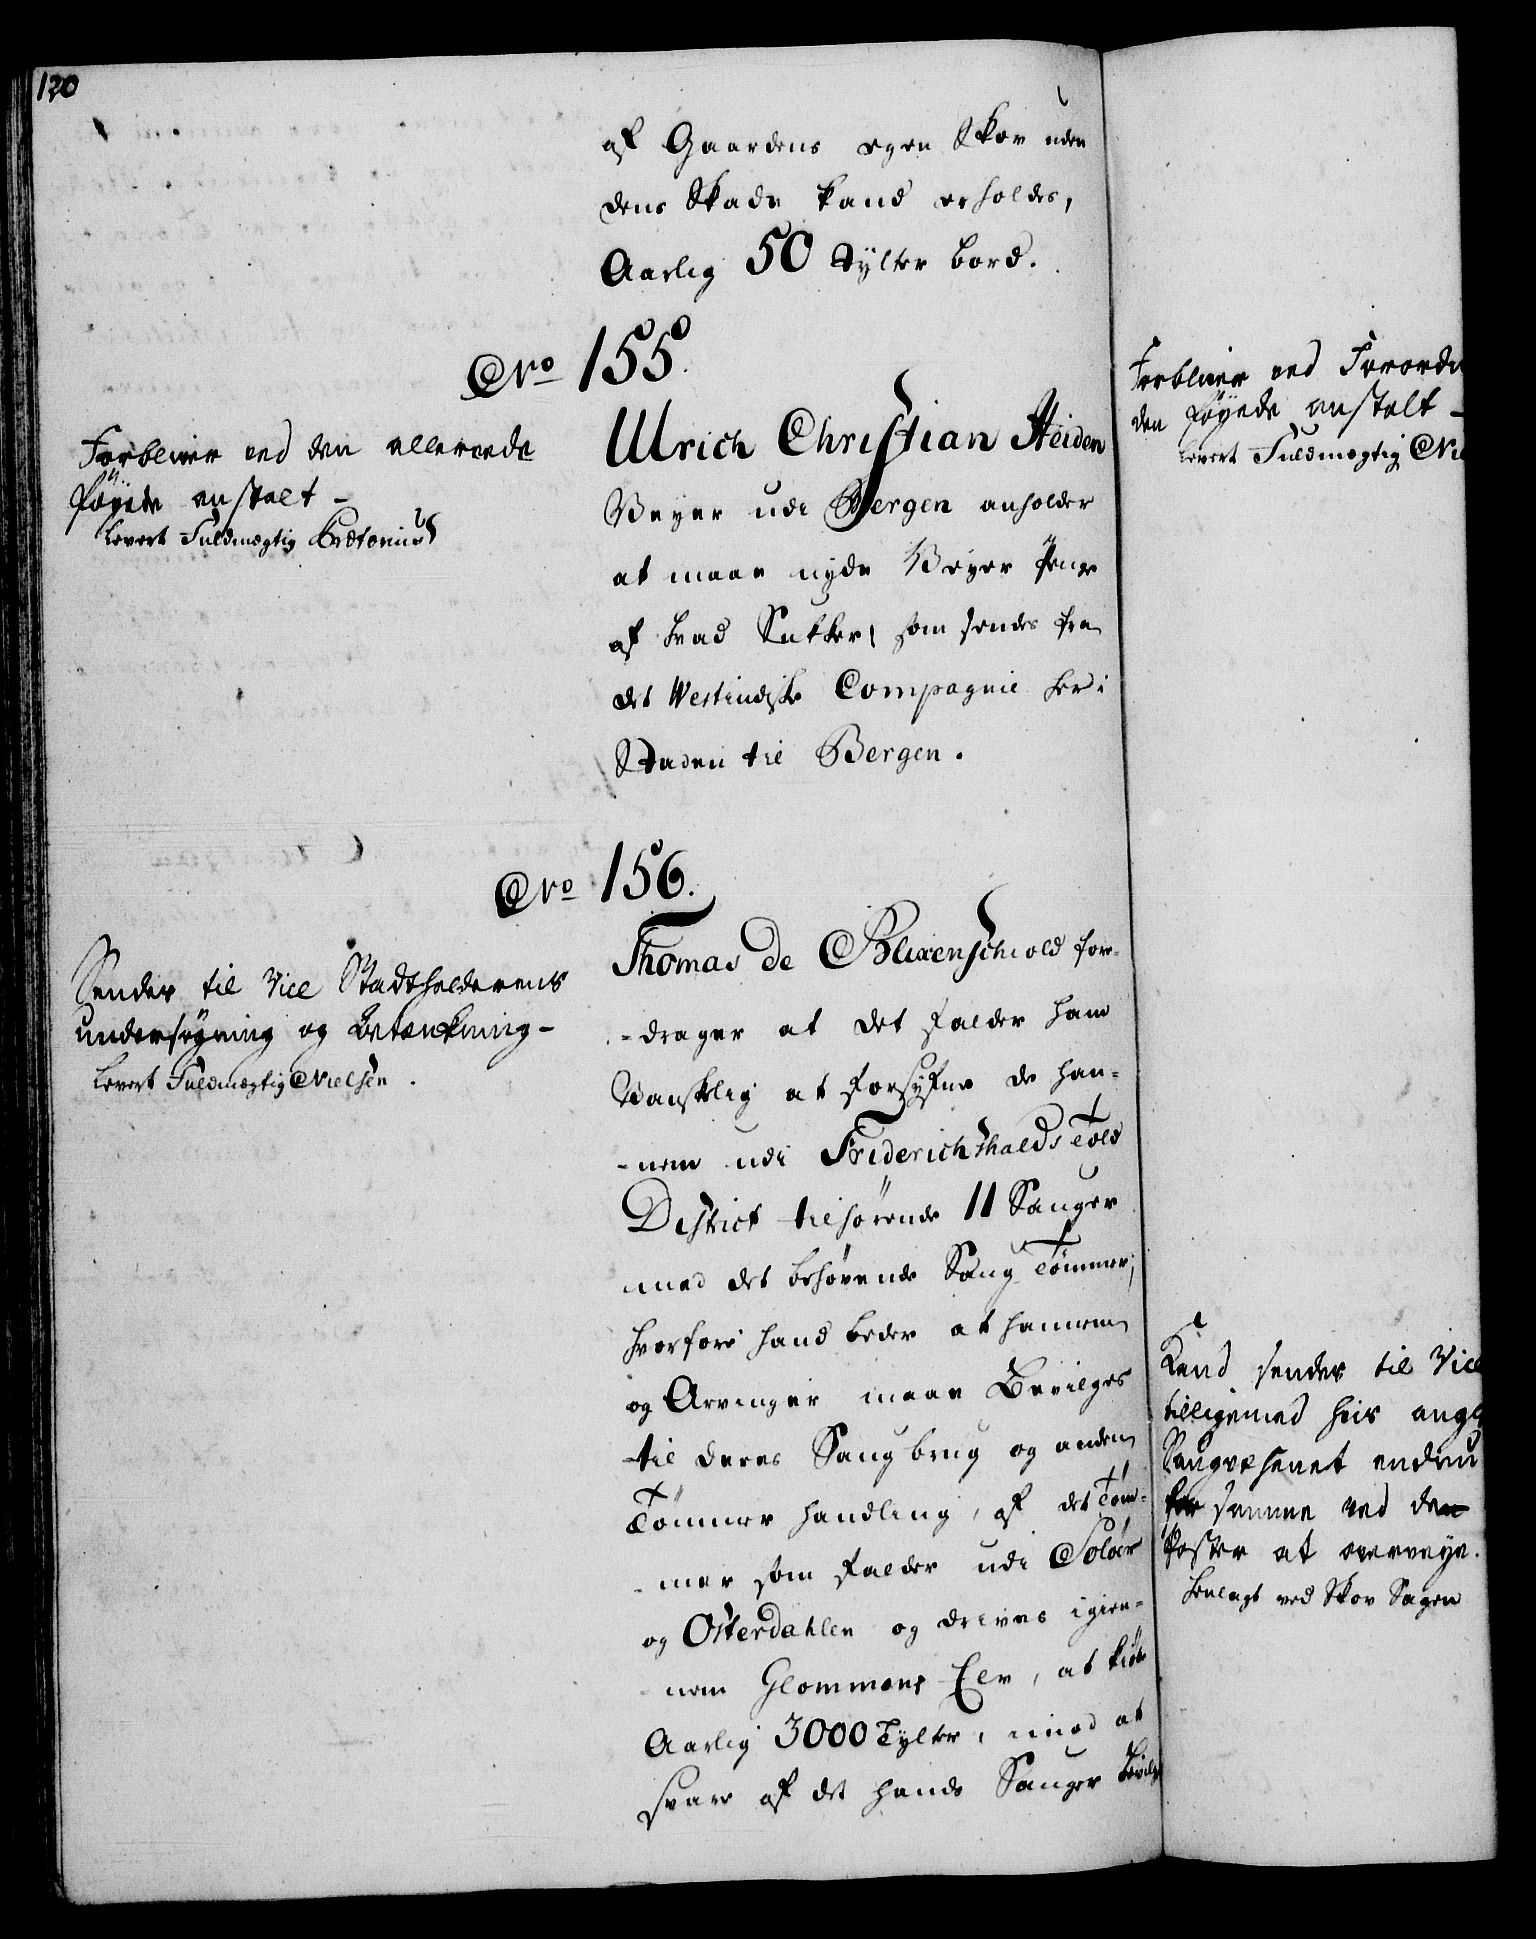 120
af Gaardens egen Skov uden
dens Skade kand erholdes,
Aarlig 50 Tylter bord.
No 155.
Forbliver ved den allereede
føyede anstalt –
Levert Fuldmægtig Prætorius
Ulrich Christian Heiden
Veyer udi Bergen anholder
at maae nyde Veyer Penge
af hvad Sukker, som sendes fra
det Westindiske Compagnie her i
Staden til Bergen.
No 156.
Sendes til Vice Stadtholderens
undersøgning og Betænkning –
Levert Fuldmægtig Nielsen.
Thomas de Blixenschiold for-
-drager at det falder ham
Vanskelig at forsyne de han-
-nem udi Friderichshalds Told
District tilhørende 11 Sauger
med det behøvende Saug Tømmer,
hvorfore hand beder at hannem
og Arvinger maae Bevilges
til deres Saugbrug og anden
Tømmer handling, af det Tøm-
-mer som falder udi Soløer
og Osterdahlen og drives igien-
-nem Glommens Elv, at kiøbe
Aarlig 3000 Tylter, imod at
svare af det hands Sauger
Forbliver ved
den føyede anstalt –
Levert Fuldmægtig
Kand sendes til Vice
tilligemed hvis
Saugvæsenet
samme ved
Poster at overveye.
henlagt ved Skov Sagen